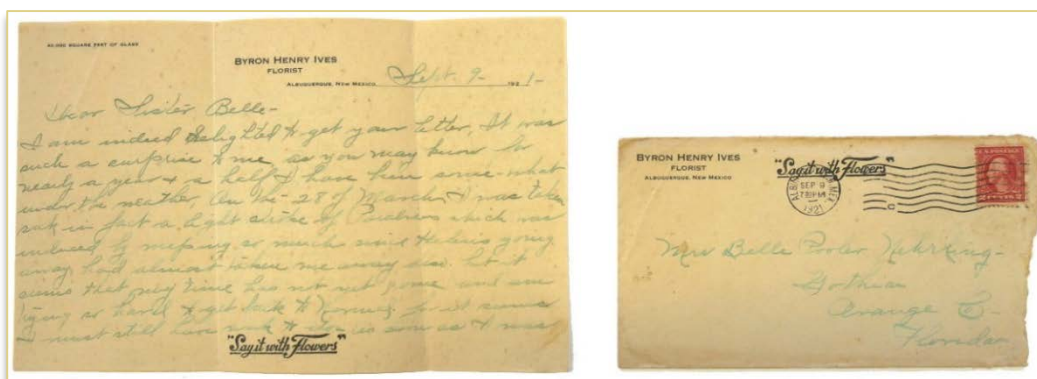 40,000 SQUARE FEET OF GLASS
BYRON HENRY IVES
FLORIST
ALBUQUERQUE, NEW MEXICO Sept. 9- 192 1-
Dear Sister Belle-
I am indeed delighted to get your letter. It was
such a surprise to me, as you may know for
nearly a year & a half I have been some-what
under the weather. On the 28 of March I was taken
sick in fact a light stroke of which was
induced by so much since going
away had almost taken me away but it
seems that my time has not yet come and am
trying so hard to get back to for it seems
I must still have work to do as soon as I was
"Say it with Flowers"
BYRON HENRY IVES
FLORIST
ALBUQUERQUE, NEW MEXICO
"Say it with Flowers"
SEP 9
1921
Mrs Belle Pooler Nehrling-
Gotha
Orange C-
Florida